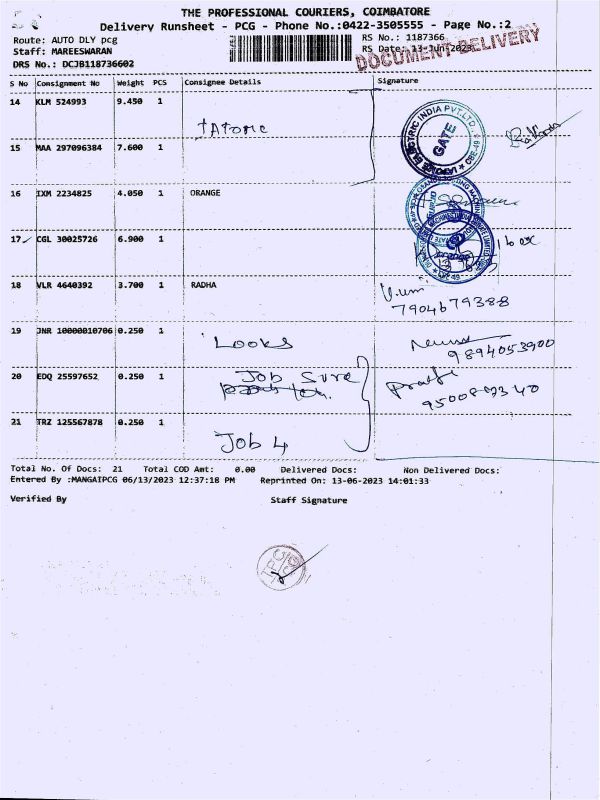 THE PROFESSIONAL COURIERS, COIMBATORE
Delivery Runsheet - PCG - Phone No.:0422-3505555 - Page No.:2
Route: AUTO DLY pcg
RS No.: 1187366
Staff: MAREESWARAN
RS Date: 13-Jun-2023
DRS No.: DCJB118736602
DOCUMENT DELIVERY
S No Consignment No Weight PCS Consignee Details Signature
14 KLM 524993 9.450 1
15 MAA 297096384 7.600 1
ELECTRIC INDIA PVT.LTD. GATE CBE-49
16 IXM 2234825 4.050 1 ORANGE
17 CGL 30025726 6.900 1
18 VLR 4640392 3.700 1 RADHA
7904679388
19 JNR 10000010706 0.250 1 Looks
9894053900
20 EDQ 25597652 0.250 1 Job Sure
21 TRZ 125567878 0.250 1
Job 4
Total No. Of Docs: 21 Total COD Amt: 0.00 Delivered Docs: Non Delivered Docs:
Entered By :MANGAIPCG 06/13/2023 12:37:18 PM Reprinted On: 13-06-2023 14:01:33
Verified By Staff Signature